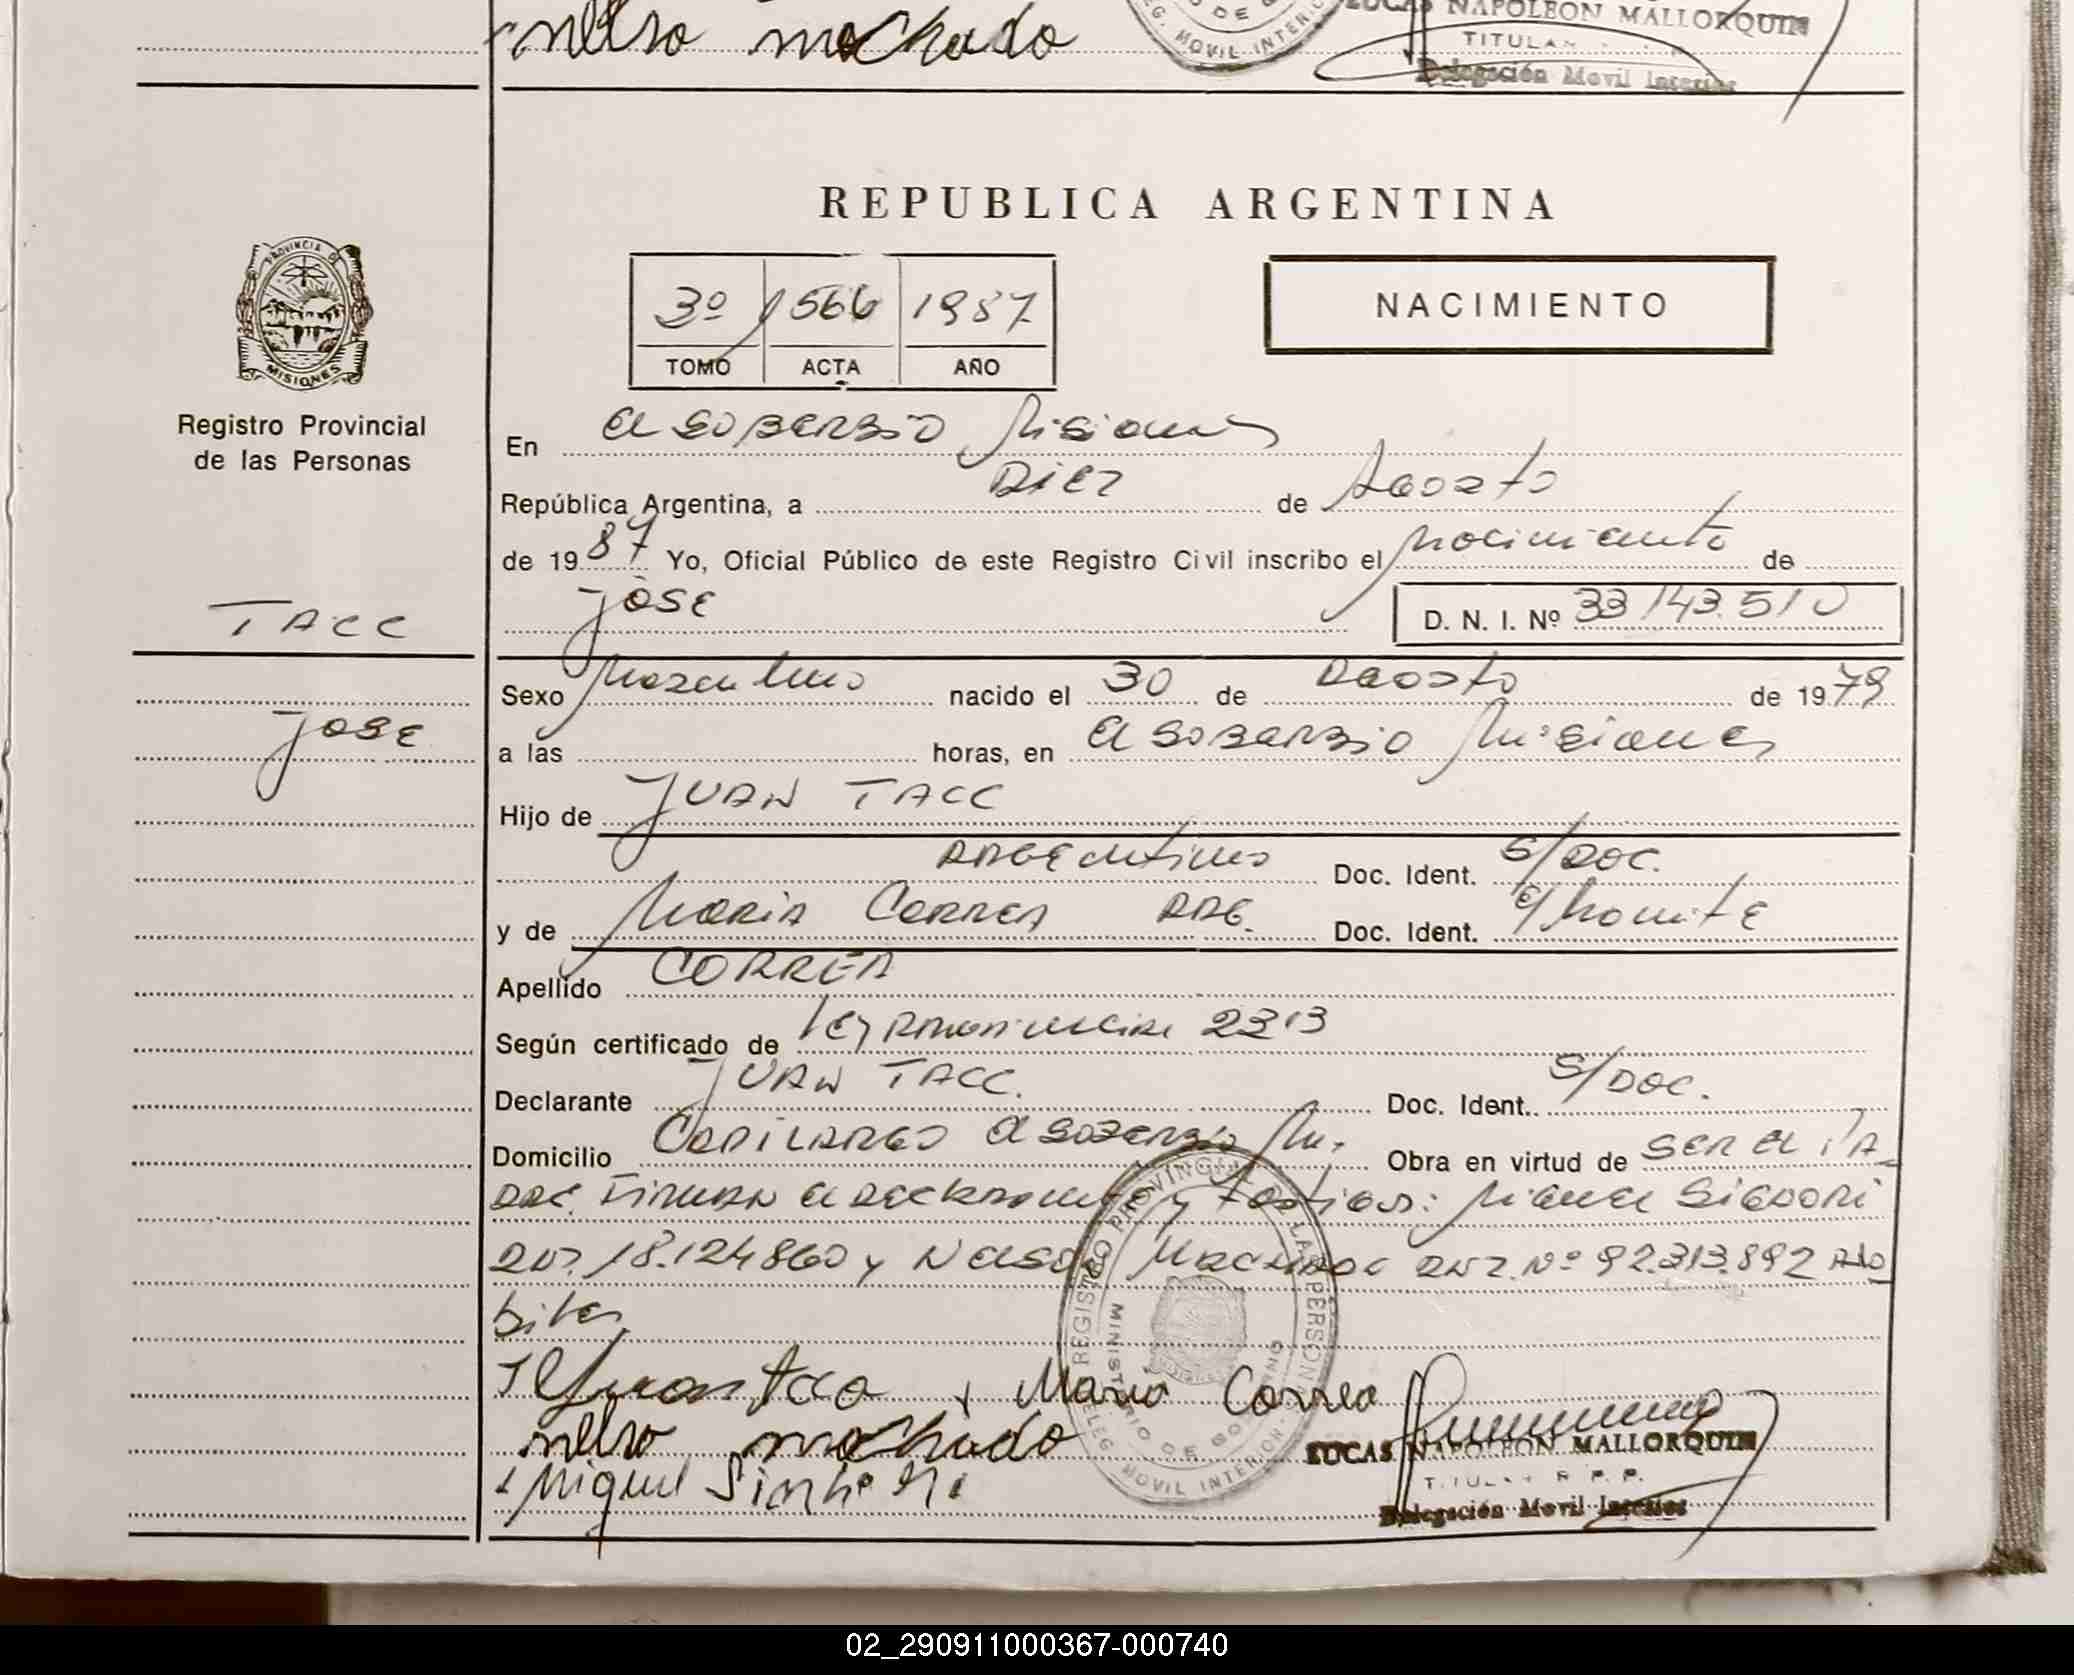 Nelso Machado
REG. MOVIL INTERIOR
LUCAS NAPOLEON MALLORQUIN
TITULAR
Delegación Movil Interior
REPUBLICA ARGENTINA
PROVINCIA DE
MISIONES
3º 1566 1987
TOMO ACTA AÑO
NACIMIENTO
Registro Provincial
de las Personas
En El Soberbio Misiones
República Argentina, a Diez de Agosto
de 1987 Yo, Oficial Público de este Registro Civil inscribo el Nacimiento de
José D. N. I. Nº 33143.510
TACC
JOSE
Sexo Masculino nacido el 30 de Agosto de 1979
a las horas, en El Soberbio Misiones
Hijo de JUAN TACC
Argentino Doc. Ident. S/DOC.
y de Maria Correa ARG. Doc. Ident.
Apellido CORREA
Según certificado de Ley 2313
Declarante JUAN TACC. Doc. Ident. S/DOC.
Domicilio El Soberbio Mis. Obra en virtud de SER el PA
DRE. Firman el declarante y Testigos: Miguel
DNI. 18.124860 y Nelso Machado DNI. Nº 92.313.892
Maria Correa
Nelso Machado
Miguel
REGISTRO PROVINCIAL LAS PERSONAS
MINISTERIO DE GOBIERNO
DELEG. MOVIL INTERIOR
LUCAS NAPOLEON MALLORQUIN
TITULAR R. P. P.
Delegación Movil Interior
02_290911000367-000740